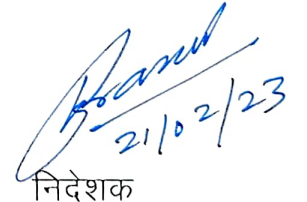 21/02/23
निदेशक